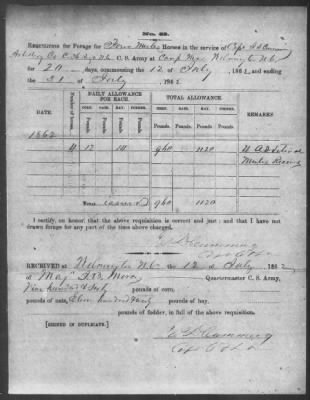 No. 33.
REQUISITION for Forage for Four Mules Horses in the service of Capt
Artillery Co C N.C. C. S. Army at Camp Wilmington N.C.
for 20 days, commencing the 12 of July 1862, and ending
the 31 of July 1862.
DAILY ALLOWANCE FOR EACH. TOTAL ALLOWANCE.
Number of Horses. CORN. OATS. HAY. FODDER. CORN. OATS. HAY. FODDER. REMARKS
Pounds. Pounds. Pounds. Pounds. Pounds. Pounds. Pounds. Pounds.
1862
4 12 14 960 1120
Mules
TOTAL 960 1120
I certify, on honor, that the above requisition is correct and just; and that I have not
drawn forage for any part of the time above charged.
Cumming
RECEIVED at Wilmington N.C. on 12 of July, 1862,
of Maj Quartermaster C. S. Army,
Nine hundred & Sixty pounds of corn,
pounds of oats, Eleven hundred & twenty pounds of hay.
pounds of fodder, in full of the above requisition.
[SIGNED IN DUPLICATE.]
Cumming